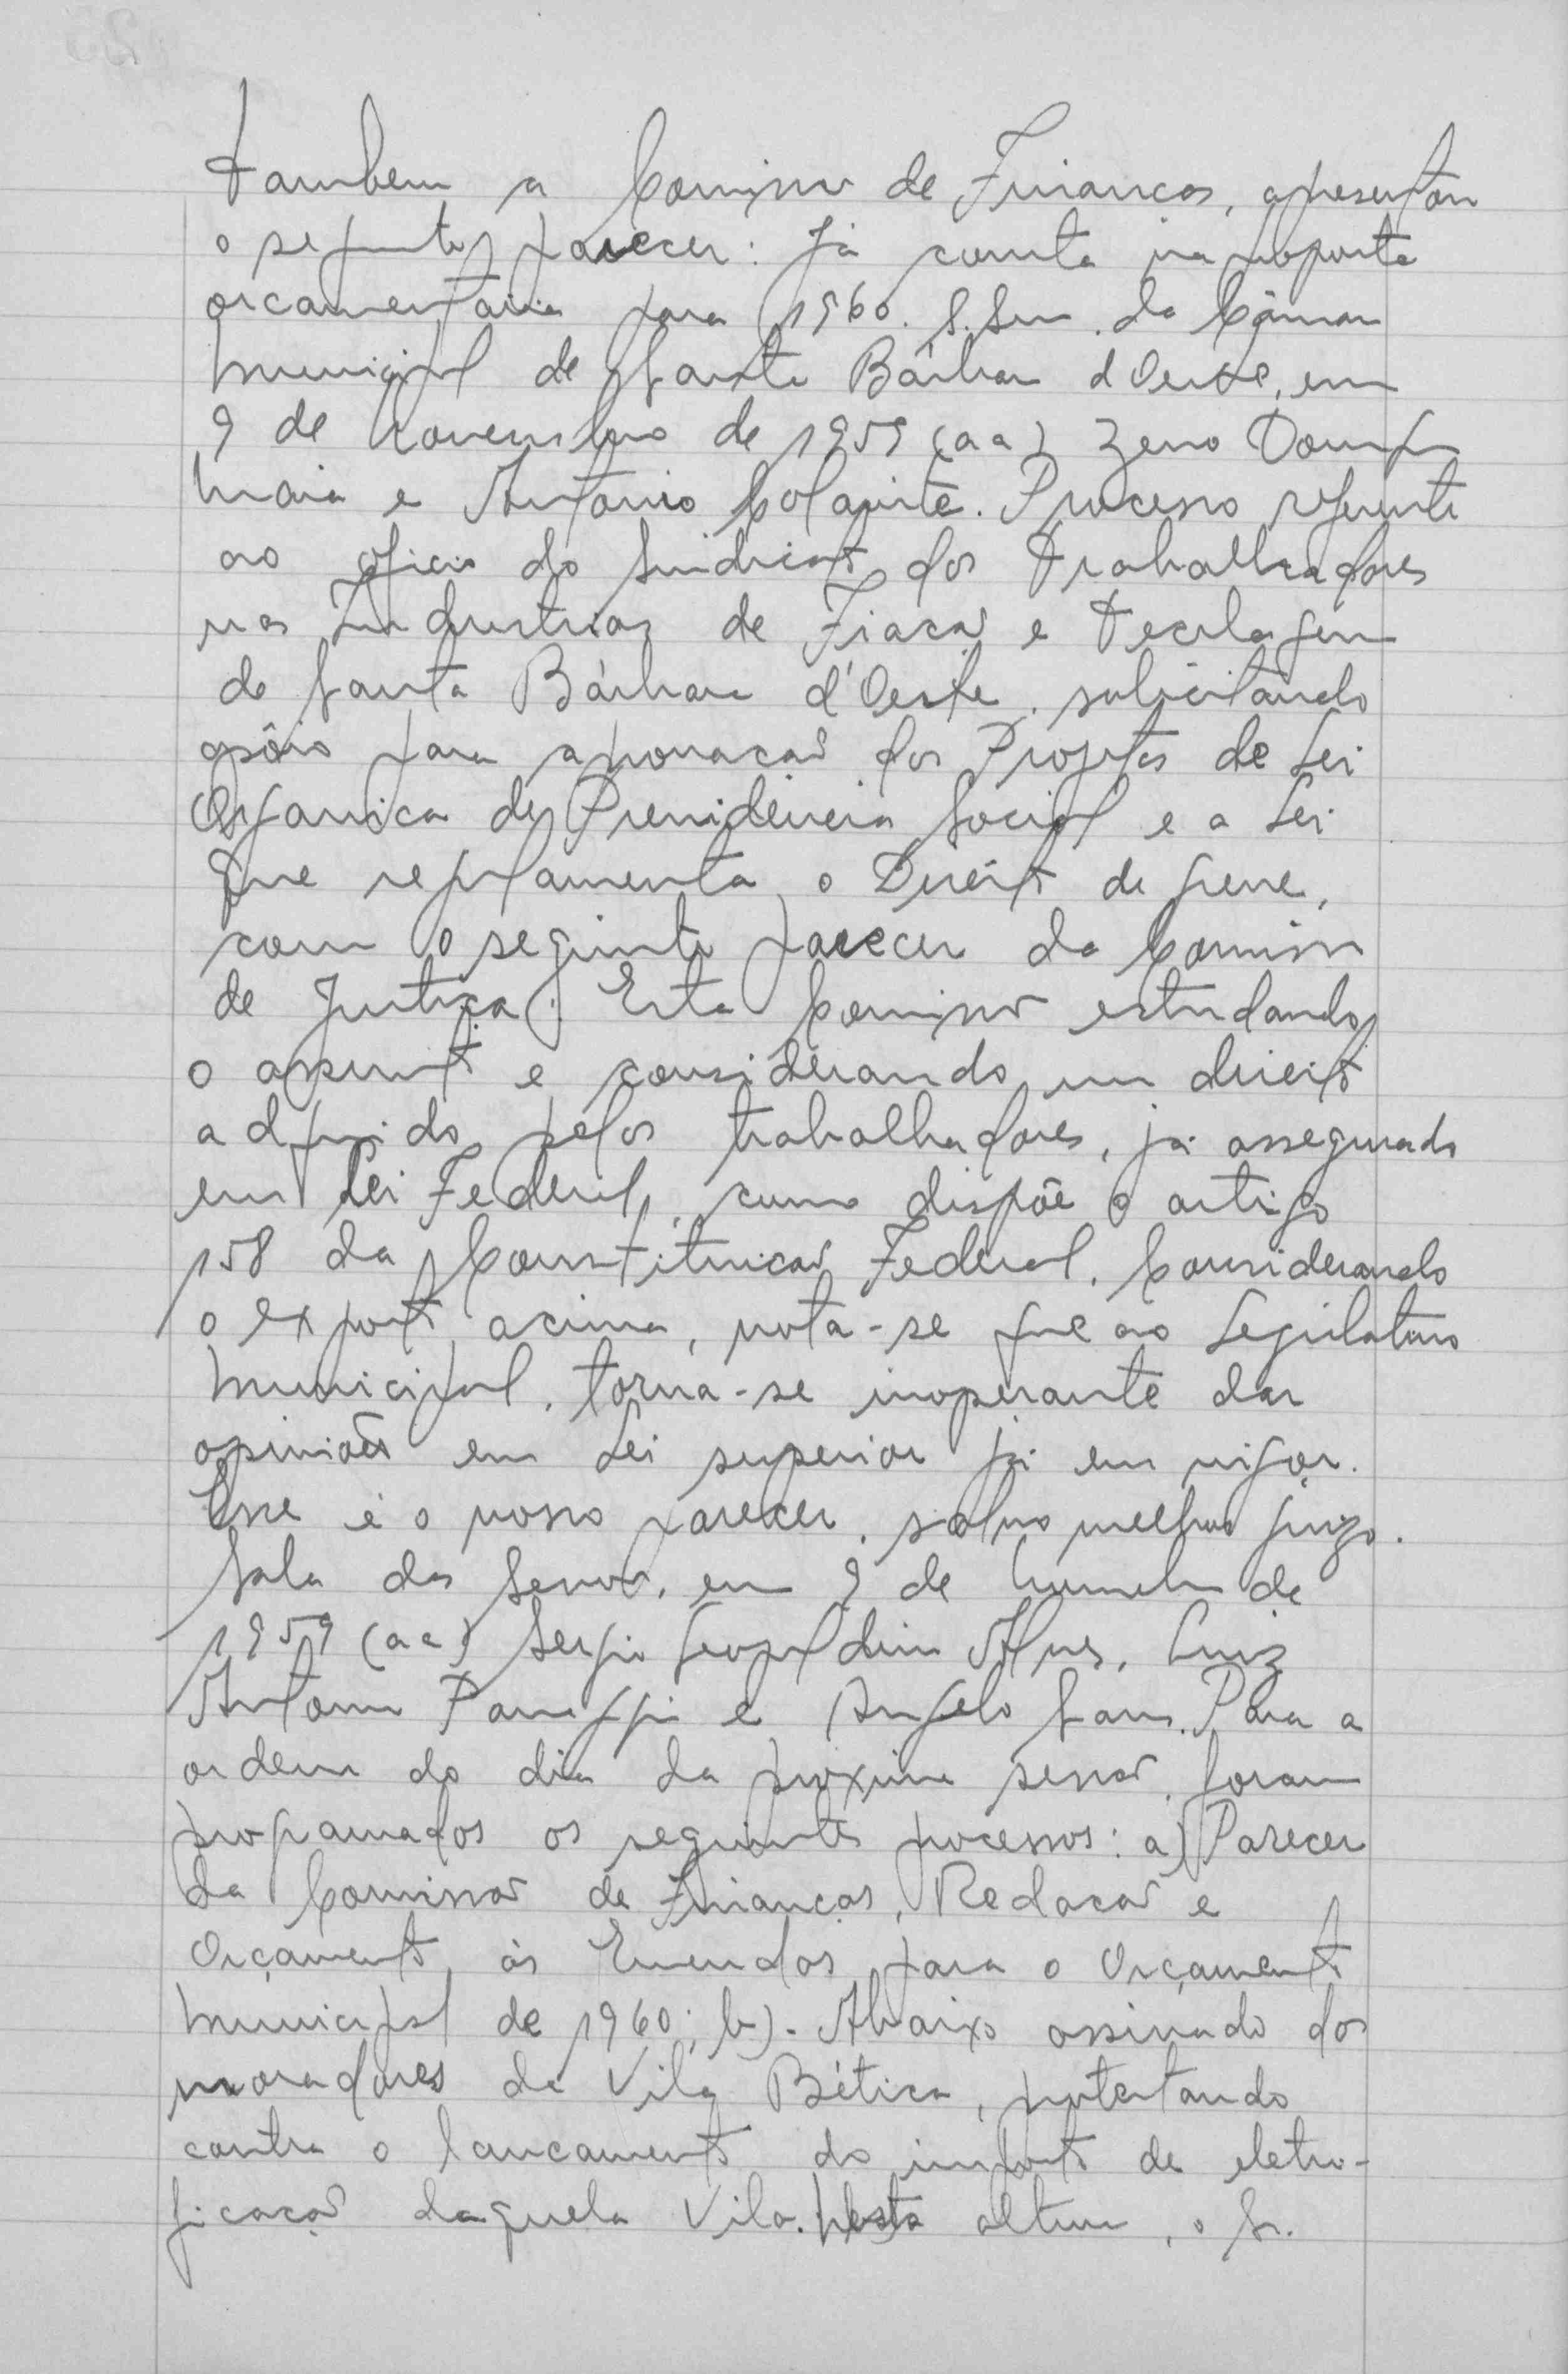 tambem a Comissão de Finanças, apresentou
o seguinte parecer: já consta na proposta
orçamentária para 1960. S. Ses. da Câmara
Municipal de Santa Bárbara d Oeste, em
9 de novembro de 1959 (aa) Zeno Domingos
Maia e Antonio Processo referente
ao oficio do Sindicato dos Trabalhadores
nas Industrias de Fiação e Tecelagem
de Santa Bárbara d'Oeste, solicitando
apôio para aprovação dos Projetos de Lei
Organica de Previdencia Social e a Lei
que regulamenta o Direito de greve,
com o seguinte parecer da Comissão
de Justiça: Esta Comissão estudando
o assunto e considerando um direito
adquirido pelos trabalhadores, já assegurado
em Lei Federal, como dispõe o artigo
158 da Constituição Federal. Considerando
o exposto acima, nota-se que ao Legislativo
Municipal, torna-se inoperante dar
opiniões em Lei superior já em vigor.
Esse é o nosso parecer, salvo melhor juizo.
Sala das Sessões, em 9 de Novembro de
1959 (aa) Sergio Leopoldino Alves, Luiz
Antonio Panaggio e Angelo Sans. Para a
ordem do dia da proxima sessão, foram
programados os seguintes processos: a) Parecer
da Comissão de Finanças, Redação e
Orçamento, ás Emendas para o Orçamento
Municipal de 1960; b) - Abaixo assinado dos
moradores da Vila Bética, protestando
contra o lançamento do imposto de eletri-
ficação daquela Vila. Nesta altura, o Sr.